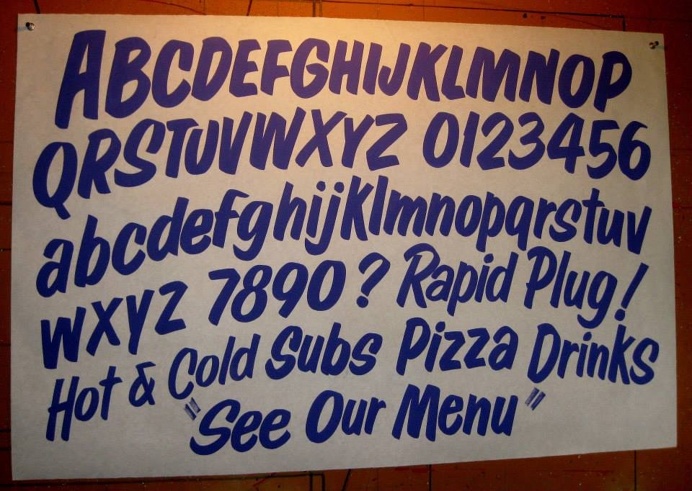 ABCDEFGHIJKLMNOP
QRSTUVWXYZ 0123456
abcdefghijklmnopqrstuv
wxyz 7890? Rapid Plug!
Hot & Cold Subs Pizza Drinks
"See Our Menu"